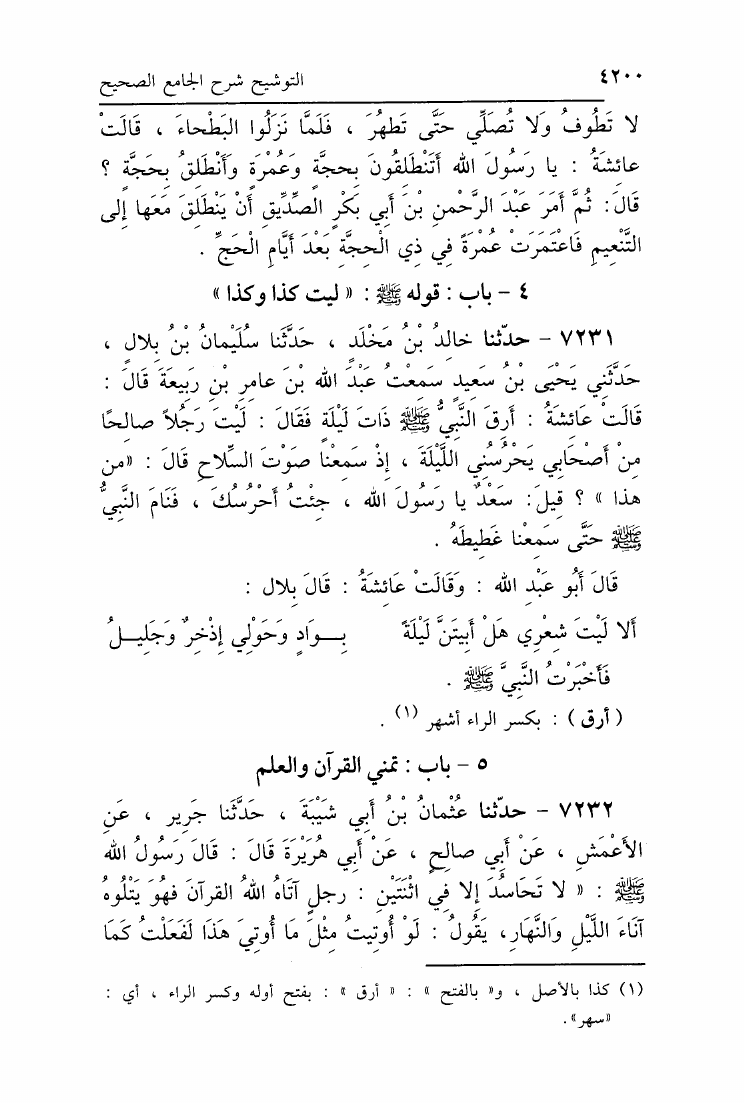 ٤٢٠٠
التوشيح شرح الجامع الصحيح
لا تَطُوفُ وَلا تُصَلِّي حَتَّى تَطْهُرَ ، فَلَمَّا نَزَلُوا البَطْحاءَ ، قَالَتْ
عائشَةُ : يا رَسُولَ الله أَتَنْطَلِقُونَ بِحجَّةٍ وَعُمْرَةٍ وأَنْطَلِقُ بِحَجَّةٍ ؟
قَالَ: ثُمَّ أَمَرَ عَبْدَ الرَّحْمنِ بْنَ أَبي بَكْرٍ الصِّدِّيقِ أَنْ يَنْطَلِقَ مَعَها إلى
التَّنْعِيمِ فَاعْتَمَرَتْ عُمْرَةً فِي ذِي الْحِجَّةِ بَعْدَ أَيَّامِ الْحَجِّ .
٤ – باب : قوله ﷺ : « ليت كذا وكذا »
٧٢٣١ – حدّثنا خالدُ بْنُ مَخْلَدٍ ، حَدَّثَنا سُلَيْمانُ بْنُ بِلالٍ ،
حَدَّثَنِي يَحْيَى بْنُ سَعِيدٍ سَمعْتُ عَبْدَ الله بْنَ عامِرِ بْنِ رَبِيعَةَ قَالَ :
قَالَتْ عَائشَةُ : أَرِقَ النَّبِيُّ ﷺ ذَاتَ لَيْلَةٍ فَقَالَ : لَيْتَ رَجُلاً صالِحًا
مِنْ أَصْحَابِي يَحْرُسُنِي اللَّيْلَةَ ، إذْ سَمِعْنَا صَوْتَ السِّلاحِ قَالَ : «من
هذا » ؟ قِيلَ: سَعْدٌ يا رَسُولَ الله ، جِئْتُ أَحْرُسُكَ ، فَنَامَ النَّبِيُّ
ﷺ حَتَّى سَمِعْنا غَطِيطَهُ .
قَالَ أَبُو عَبْدِ الله : وَقَالَتْ عَائِشَةُ : قَالَ بِلال :
أَلا لَيْتَ شِعْرِي هَلْ أَبِيتَنَّ لَيْلَةً بِـوَادٍ وَحَوْلِي إِذْخِرٌ وَجَلِيـلُ
فَأَخْبَرْتُ النَّبِيَّ ﷺ .
( أرق ) : بكسر الراء أشهر (١) .
٥ – باب : تمني القرآن والعلم
٧٢٣٢ – حدّثنا عثْمانُ بْنُ أَبِي شَيْبَةَ ، حَدَّثَنَا جَرِير ، عَنِ
الأَعْمَشِ ، عَنْ أَبِي صالِحٍ ، عَنْ أَبِي هُرَيْرَةَ قَالَ : قَالَ رَسُولُ الله
ﷺ : « لا تَحَاسُدَ إلا فِي اثْنَتَيْنِ : رجلٍ آتَاهُ اللهُ القرآنَ فَهُوَ يَتْلُوهُ
آنَاءَ اللَّيْلِ وَالنَّهَارِ، يَقُولُ : لَوْ أُوتِيتُ مِثْلَ مَا أُوتِيَ هَذَا لَفَعَلْتُ كَمَا
(١) كذا بالأصل ، و« بالفتح » : « أرق » : بفتح أوله وكسر الراء ، أي :
«سهر».